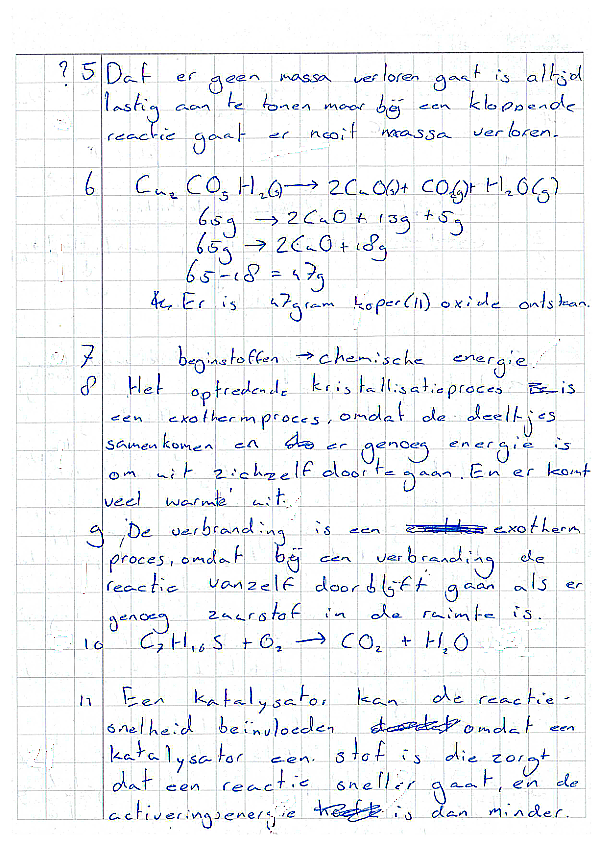 ? 5 Dat er geen massa verloren gaat is altijd
lastig aan te tonen maar bij een kloppende
reactie gaat er nooit massa verloren.
6 Cu₂CO₅H₂(s) → 2CuO(s) + CO₂(g) + H₂O(g)
65g → 2CuO + 13g + 5g
65g → 2CuO + 18g
65-18 = 47g
Er is 47gram koper(II) oxide ontstaan.
7 beginstoffen → chemische energie.
8 Het optredende kristallisatieproces is
een exothermproces, omdat de deeltjes
samenkomen en er genoeg energie is
om uit zichzelf door te gaan. En er komt
veel warmte uit.
9 De verbranding is een exotherm
proces, omdat bij een verbranding de
reactie vanzelf door blijft gaan als er
genoeg zuurstof in de ruimte is.
10 C₇H₁₆S + O₂ → CO₂ + H₂O
11 Een katalysator kan de reactie-
snelheid beïnvloeden omdat een
katalysator een stof is die zorgt
dat een reactie sneller gaat, en de
activeringsenergie is dan minder.